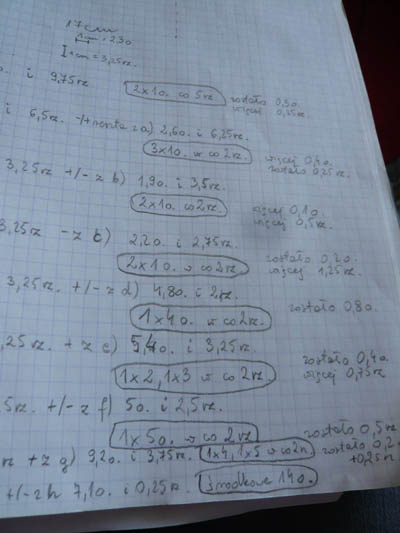 17 cm
1 cm = 2,3 o.
1 cm = 3,25 rz.
o. i 9,75 rz. 2x1o. co 5 rz zostało 0,3o. więcej 0,25rz.
i 6,5 rz. -/+ reszta z a) 2,6o. i 6,25 rz.
3x1o. w co 2 rz. więcej 0,4o. zostało 0,25 rz.
3,25 rz +/- z b) 1,9o. i 3,5 rz.
2x1o. co 2 rz. więcej 0,1o. więcej 0,5 rz.
3,25 rz - z b) 2,2o. i 2,75 rz.
2x1o. w co 2 rz zostało 0,2o. więcej 1,25 rz.
3,25 rz. +/- z d) 4,8o. i 2 rz.
1x4o. w co 2 rz. zostało 0,8o.
,25 rz. + z e) 5,4o. i 3,25 rz.
1x2, 1x3 w co 2 rz. zostało 0,4o. więcej 0,75 rz
5 rz. +/- z f) 5o. i 2,5 rz.
1x5o. w co 2 rz zostało 0,5 rz
rz + z g) 9,2o. i 3,75 rz. 1x4, 1x5 w co 2 rz zostało 0,2 +0,25 rz
+/- z h 7,1o. i 0,25 rz. środkowe 14o.